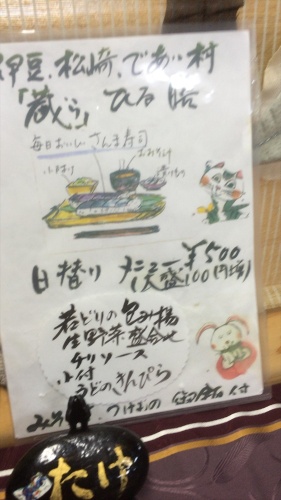 伊豆、松崎、であい村
「蔵ら」 ひる膳
毎日おいしい さんま寿司
小ばち
おみそ汁
漬けもの
日替り メニュー ¥500
大盛 100円増
若どりの包み揚
生野菜盛合せ
チリソース
小付
うどのきんぴら
みそ
つけもの
付
たけ